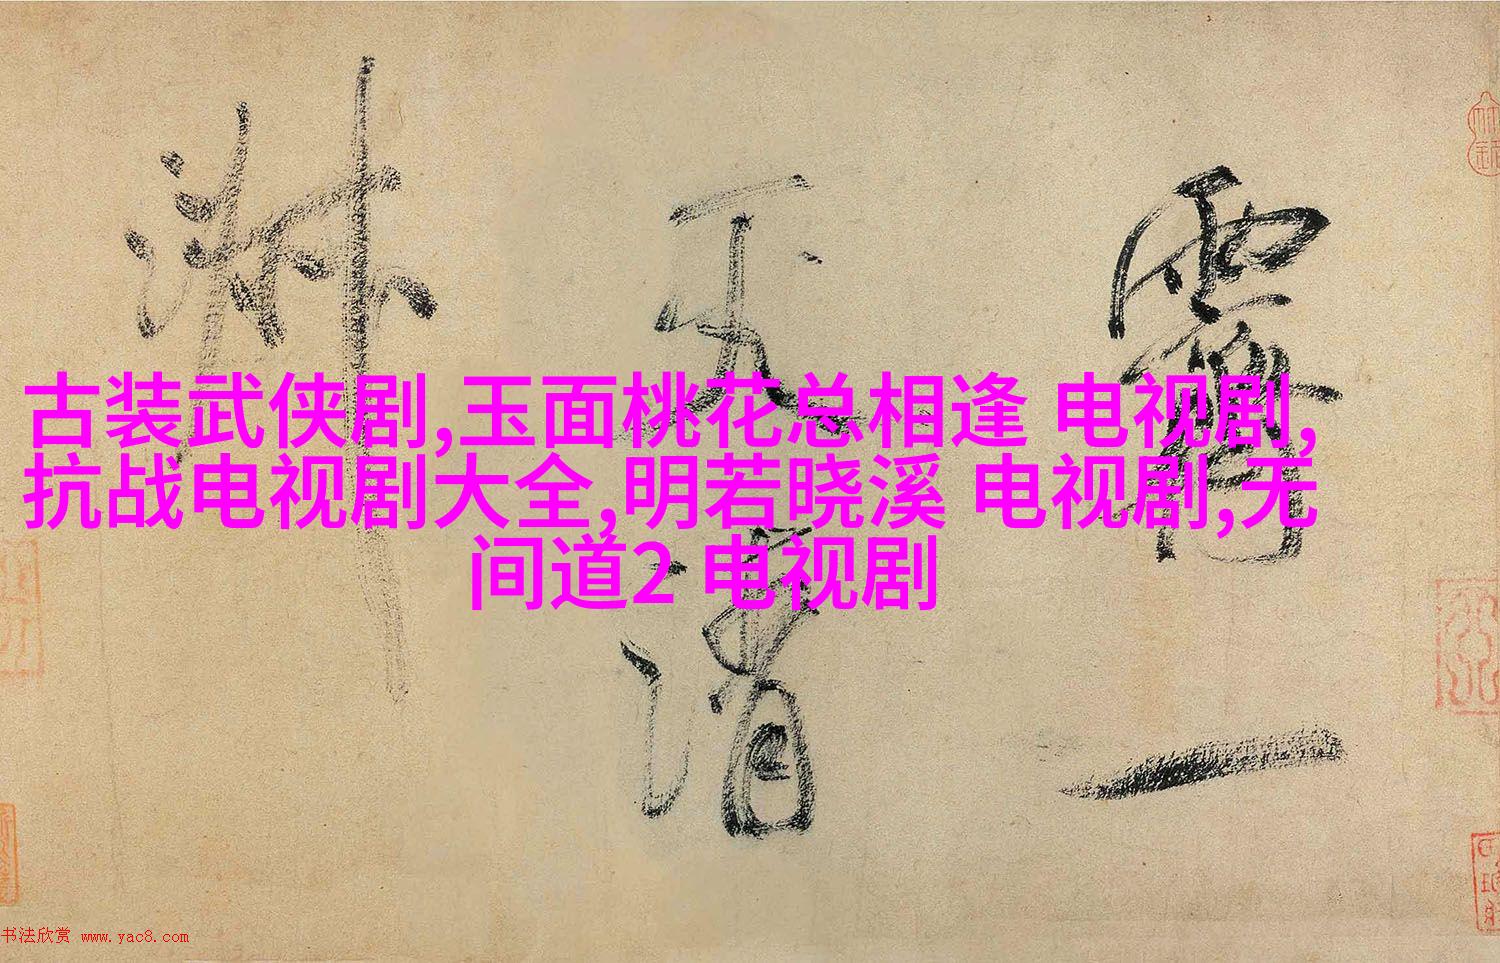 霽一
天清
淑
古装武侠剧,玉面桃花总相逢 电视剧,
抗战电视剧大全,明若晓溪 电视剧,无
间道2 电视剧
书法欣赏 www.yac8.com